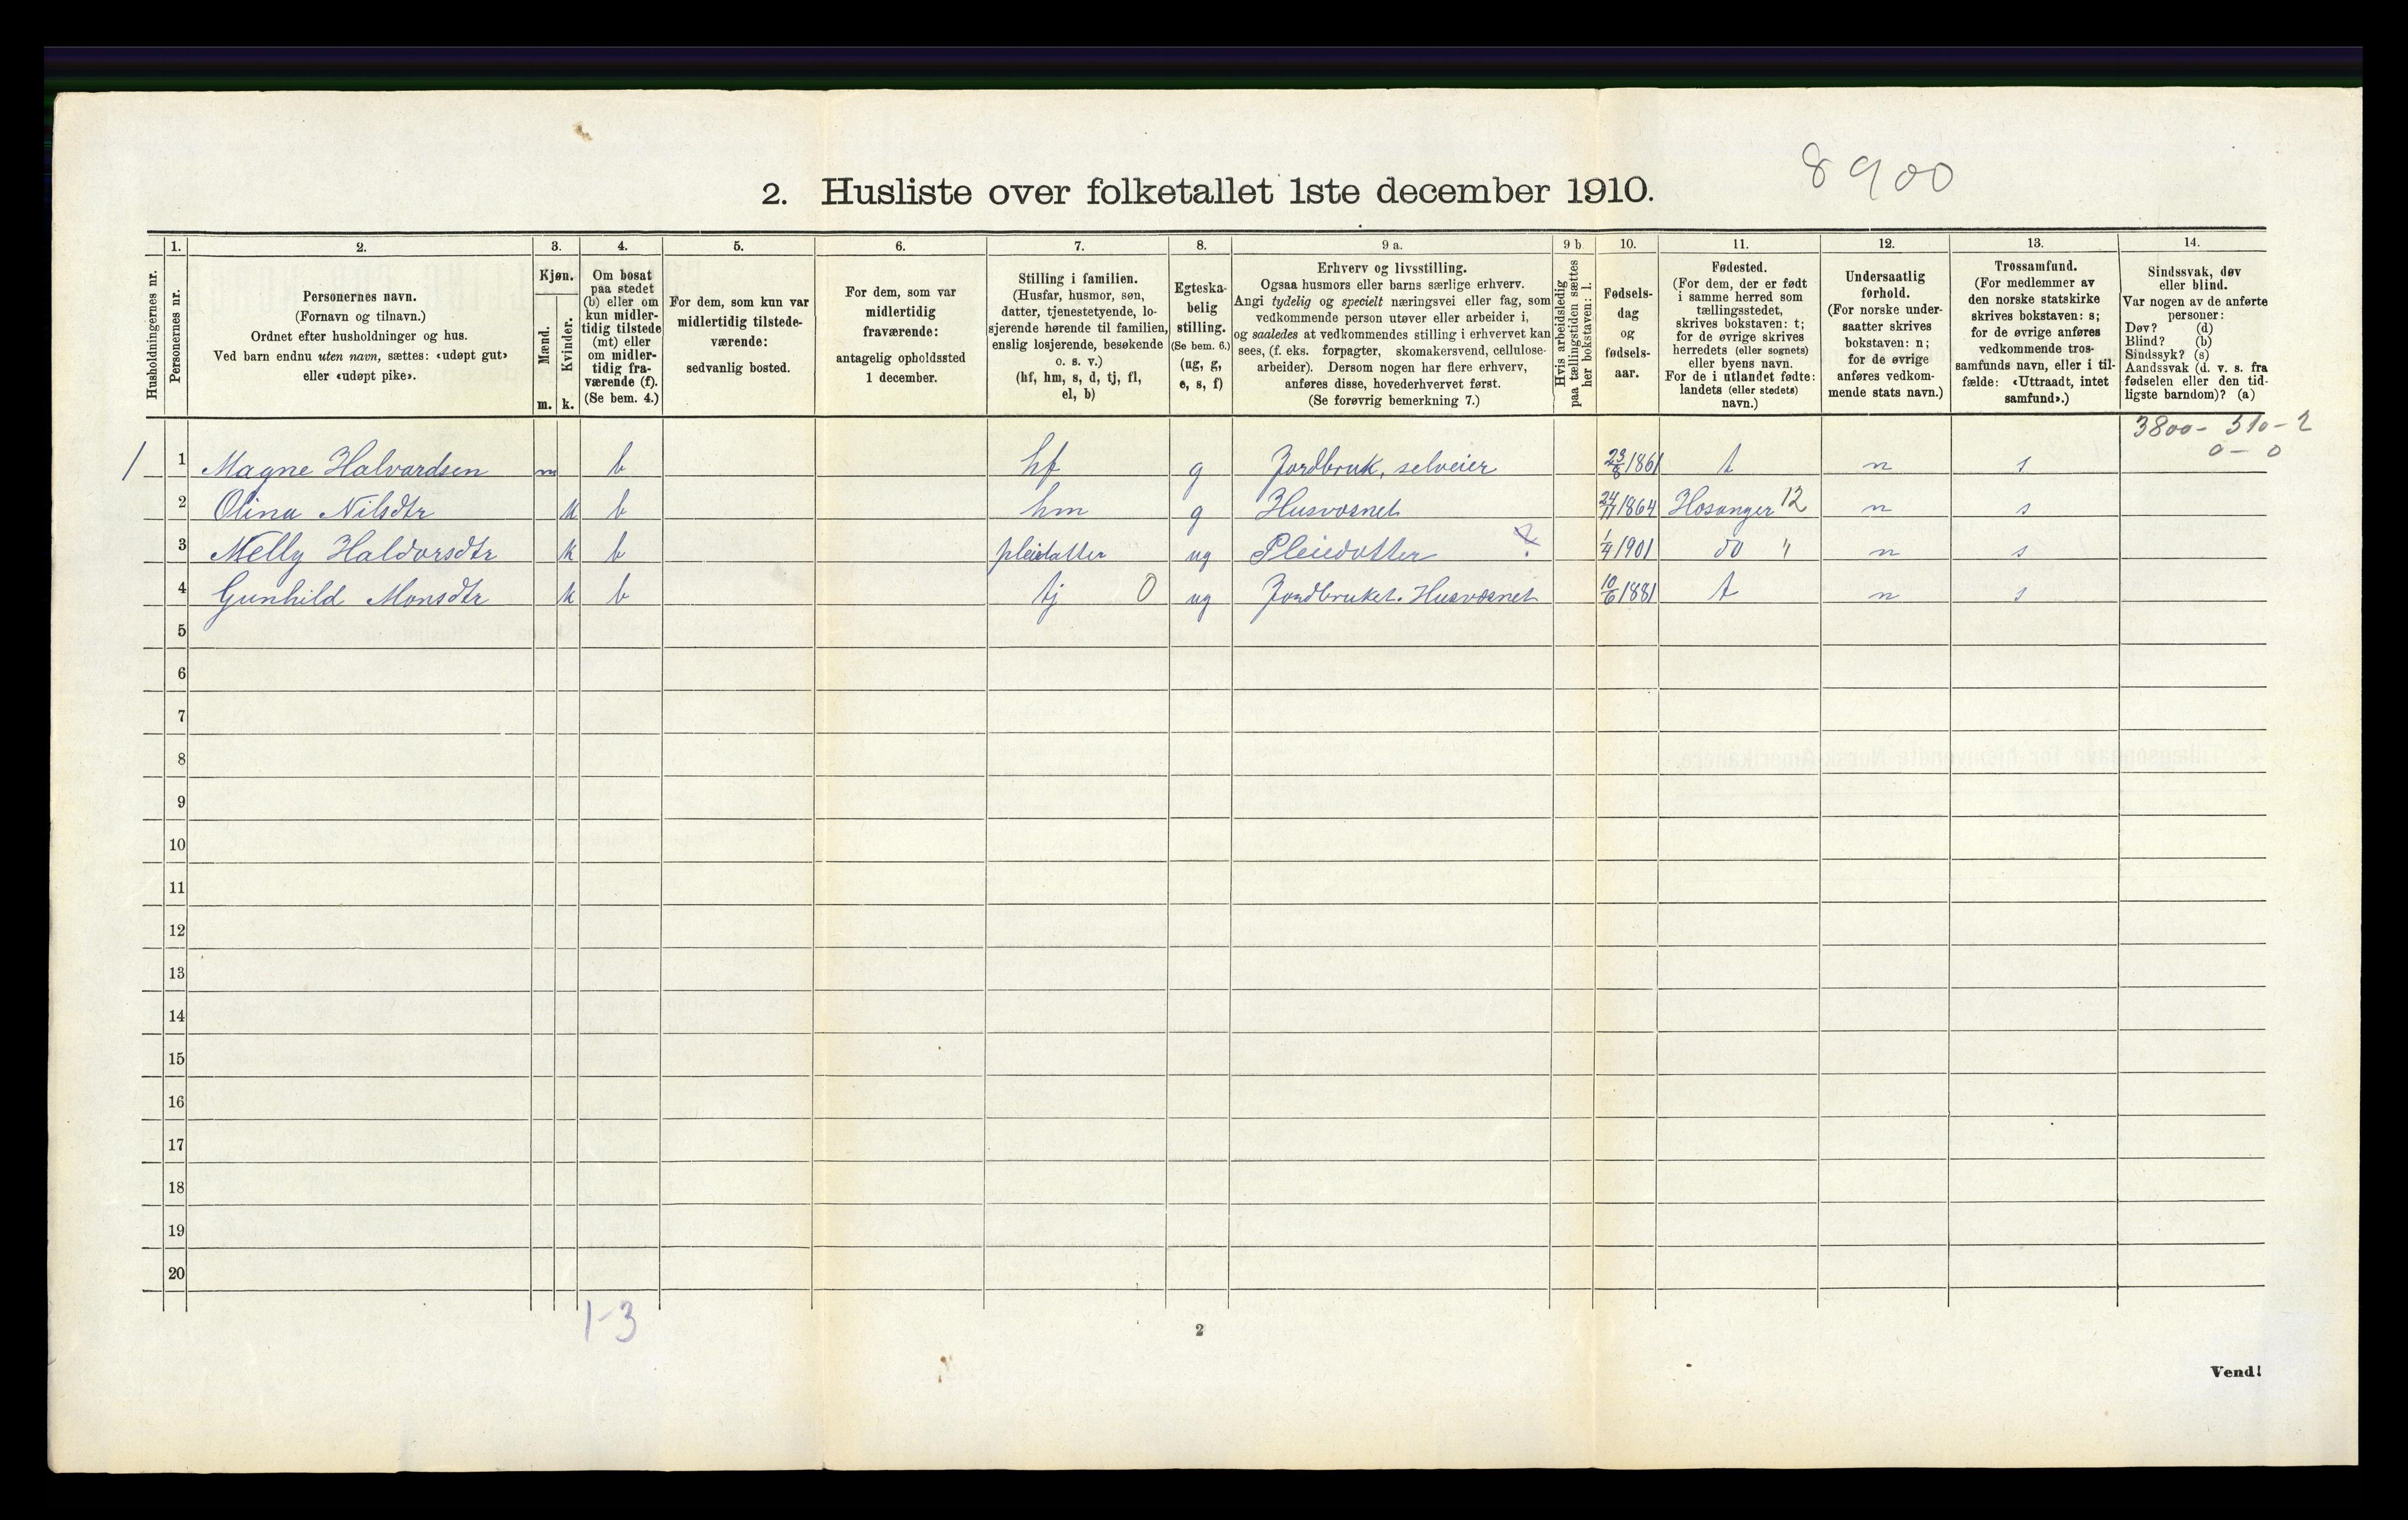 8900
2. Husliste over folketallet 1ste december 1910.
Husholdningernes nr.
1.
Personernes nr.
2.
Personernes navn.
(Fornavn og tilnavn.)
Ordnet efter husholdninger og hus.
Ved barn endnu uten navn, sættes: «udøpt gut»
eller «udøpt pike».
3.
Kjøn.
Mænd.
m.
Kvinder.
k.
4.
Om bosat
paa stedet
(b) eller om
kun midler-
tidig tilstede
(mt) eller
om midler-
tidig fra-
værende (f).
(Se bem. 4.)
5.
For dem, som kun var
midlertidig tilstede-
værende:
sedvanlig bosted.
6.
For dem, som var
midlertidig
fraværende:
antagelig opholdssted
1 december.
7.
Stilling i familien.
(Husfar, husmor, søn,
datter, tjenestetyende, lo-
sjerende hørende til familien,
enslig losjerende, besøkende
o. s. v.)
(hf, hm, s, d, tj, fl,
el, b)
8.
Egteska-
belig
stilling.
(Se bem. 6.)
(ug, g,
e, s, f)
9 a.
Erhverv og livsstilling.
Ogsaa husmors eller barns særlige erhverv.
Angi tydelig og specielt næringsvei eller fag, som
vedkommende person utøver eller arbeider i,
og saaledes at vedkommendes stilling i erhvervet kan
sees, (f. eks. forpagter, skomakersvend, cellulose-
arbeider). Dersom nogen har flere erhverv,
anføres disse, hovederhvervet først.
(Se forøvrig bemerkning 7.)
9 b
Hvis arbeidsledig
paa tællingstiden sættes
her bokstaven: l.
10.
Fødsels-
dag
og
fødsels-
aar.
11.
Fødested.
(For dem, der er født
i samme herred som
tællingsstedet,
skrives bokstaven: t;
for de øvrige skrives
herredets (eller sognets)
eller byens navn.
For de i utlandet fødte:
landets (eller stedets)
navn.)
12.
Undersaatlig
forhold.
(For norske under-
saatter skrives
bokstaven: n;
for de øvrige
anføres vedkom-
mende stats navn.)
13.
Trossamfund.
(For medlemmer av
den norske statskirke
skrives bokstaven: s;
for de øvrige anføres
vedkommende tros-
samfunds navn, eller i til-
fælde: «Uttraadt, intet
samfund».)
14.
Sindssvak, døv
eller blind.
Var nogen av de anførte
personer:
Døv? (d)
Blind? (b)
Sindssyk? (s)
Aandssvak (d. v. s. fra
fødselen eller den tid-
ligste barndom)? (a)
3800- 510-2
0-0
1 1 Magne Halvardsen m b hf g Jordbruk, selveier 23/8 1861 t n s
2 Olina Nilsdtr k b hm g Husvæsnet 24/11 1864 Hosanger 12 n s
3 Nelly Haldorsdtr k b pleiedatter ug Pleiedotter 1/4 1901 do " n s
4 Gunhild Monsdtr k b tj 0 ug Jordbruket. Husvæsnet 10/6 1881 t n s
5
6
7
8
9
10
11
12
13
14
15
16
17
18
19
20
1-3
2
Vend!